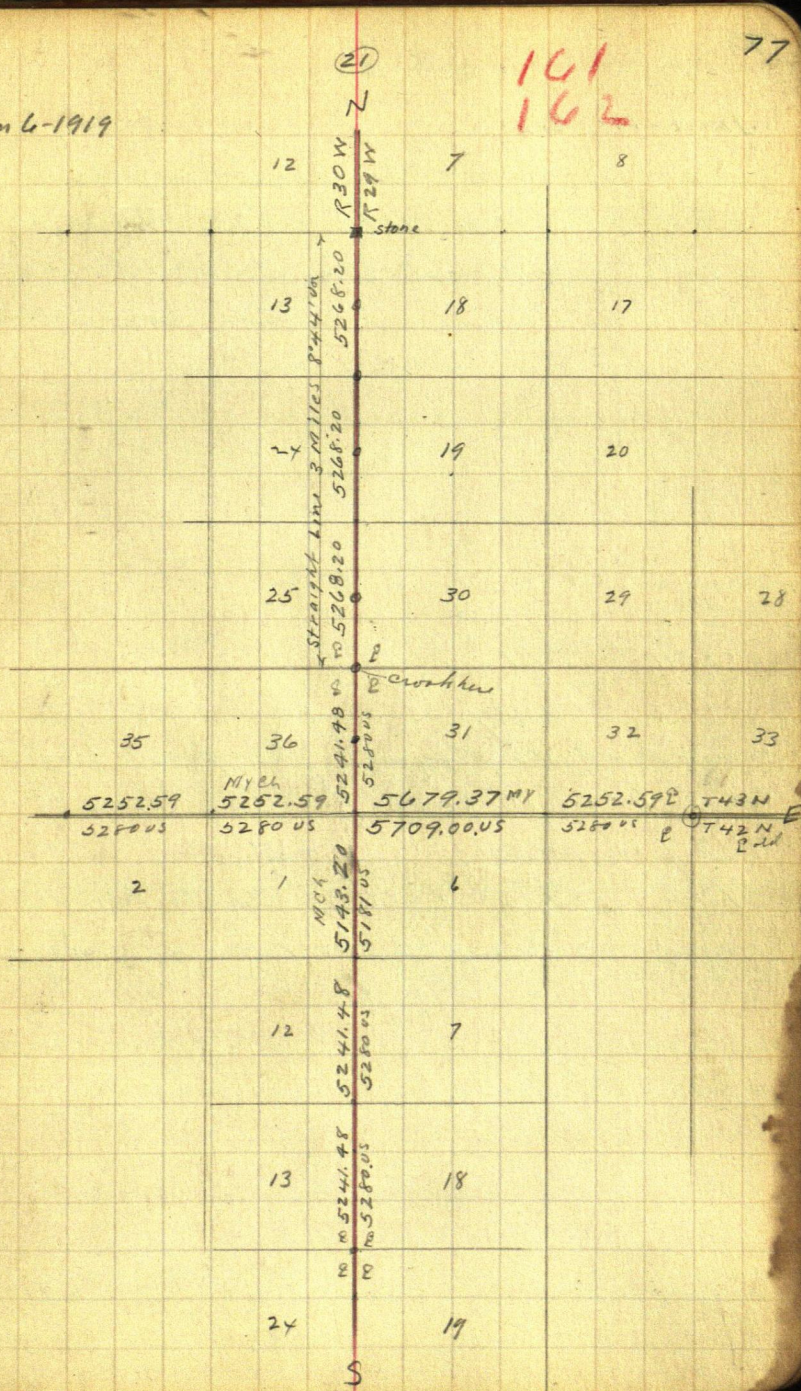 77
21
161
162
6-1919
N
12 R30W R29W 7 8
stone
13 5268.20 18 17
Straight Line 3 Miles 8°44'
24 5268.20 19 20
25 5268.20 30 29 28
crook here
35 36 5241.48 5280 US 31 32 33
My Ch
5252.59 5252.59 5679.37 MY 5252.59 T43N
5280 US 5280 US 5709.00.US 5280 US T42N E
2 1 M Ch 5143.20 5181 US 6
12 5241.48 5280 US 7
13 5241.48 5280.US 18
24 19
S